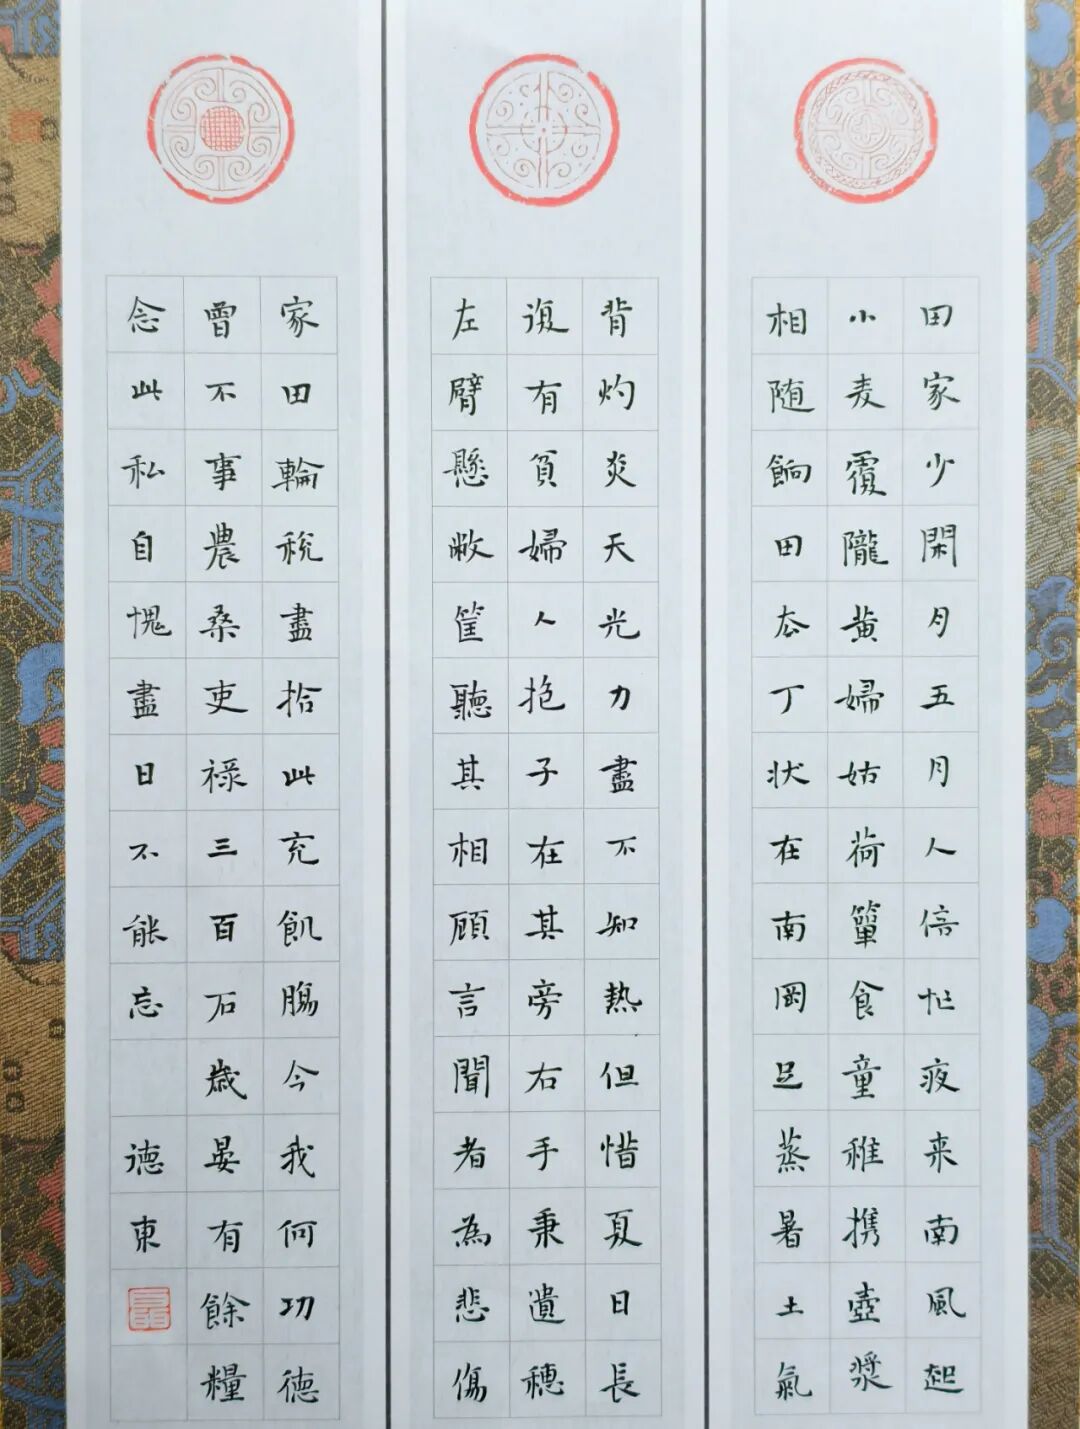 田家少閑月五月人倍忙夜来南風起
小麦覆隴黄婦姑荷簞食童稚携壺漿
相随餉田去丁状在南岡足蒸暑土氣
背灼炎天光力盡不知热但惜夏日長
復有貧婦人抱子在其旁右手秉遺穗
左臂懸敝筐聽其相顧言聞者為悲傷
家田輪税盡拾此充飢腸今我何功德
曾不事農桑吏禄三百石歳晏有餘糧
念此私自愧盡日不能忘 德東